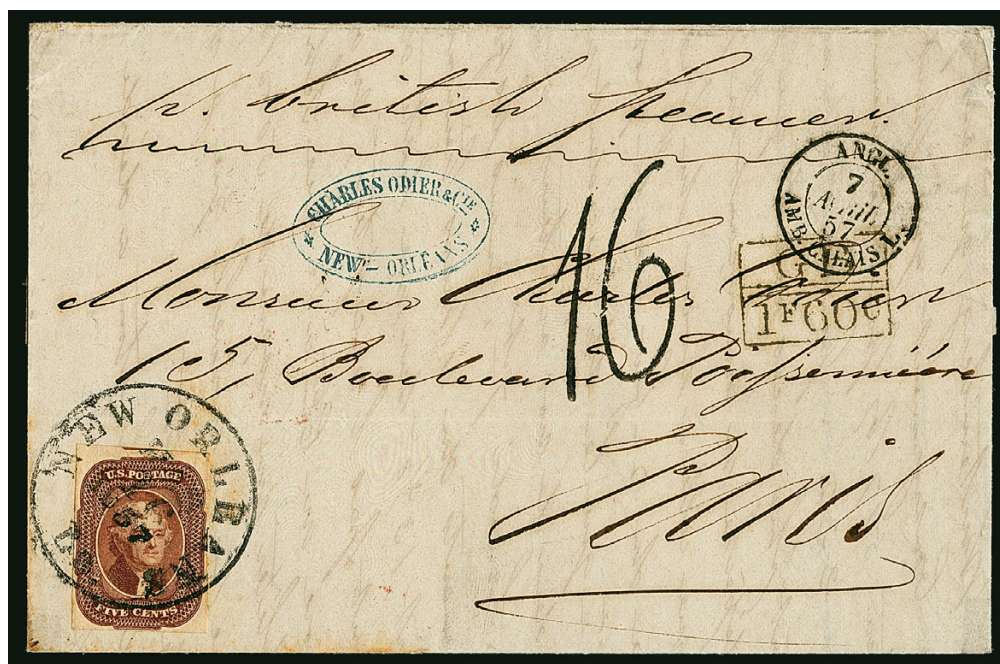 pr. british steamer.
CHARLES ODIER & CIE
NEW - ORLEANS
ANGL.
7
AVRIL
57
AMB. CALAIS
16
1F60C
Monsieur Charles
15, Boulevard Poissonnière
Paris
NEW ORLEANS
U.S. POSTAGE
FIVE CENTS